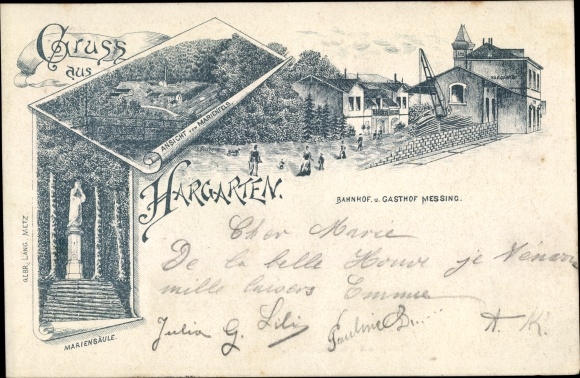 Gruss
aus
ANSICHT VON MARIENFELS
HARGARTEN.
BAHNHOF. u. GASTHOF MESSING.
GEBR. LANG, METZ
MARIENSÄULE.
Cher Marie
De la belle je
mille baisers Emma
Julia G. Lili Pauline B..... A. K.